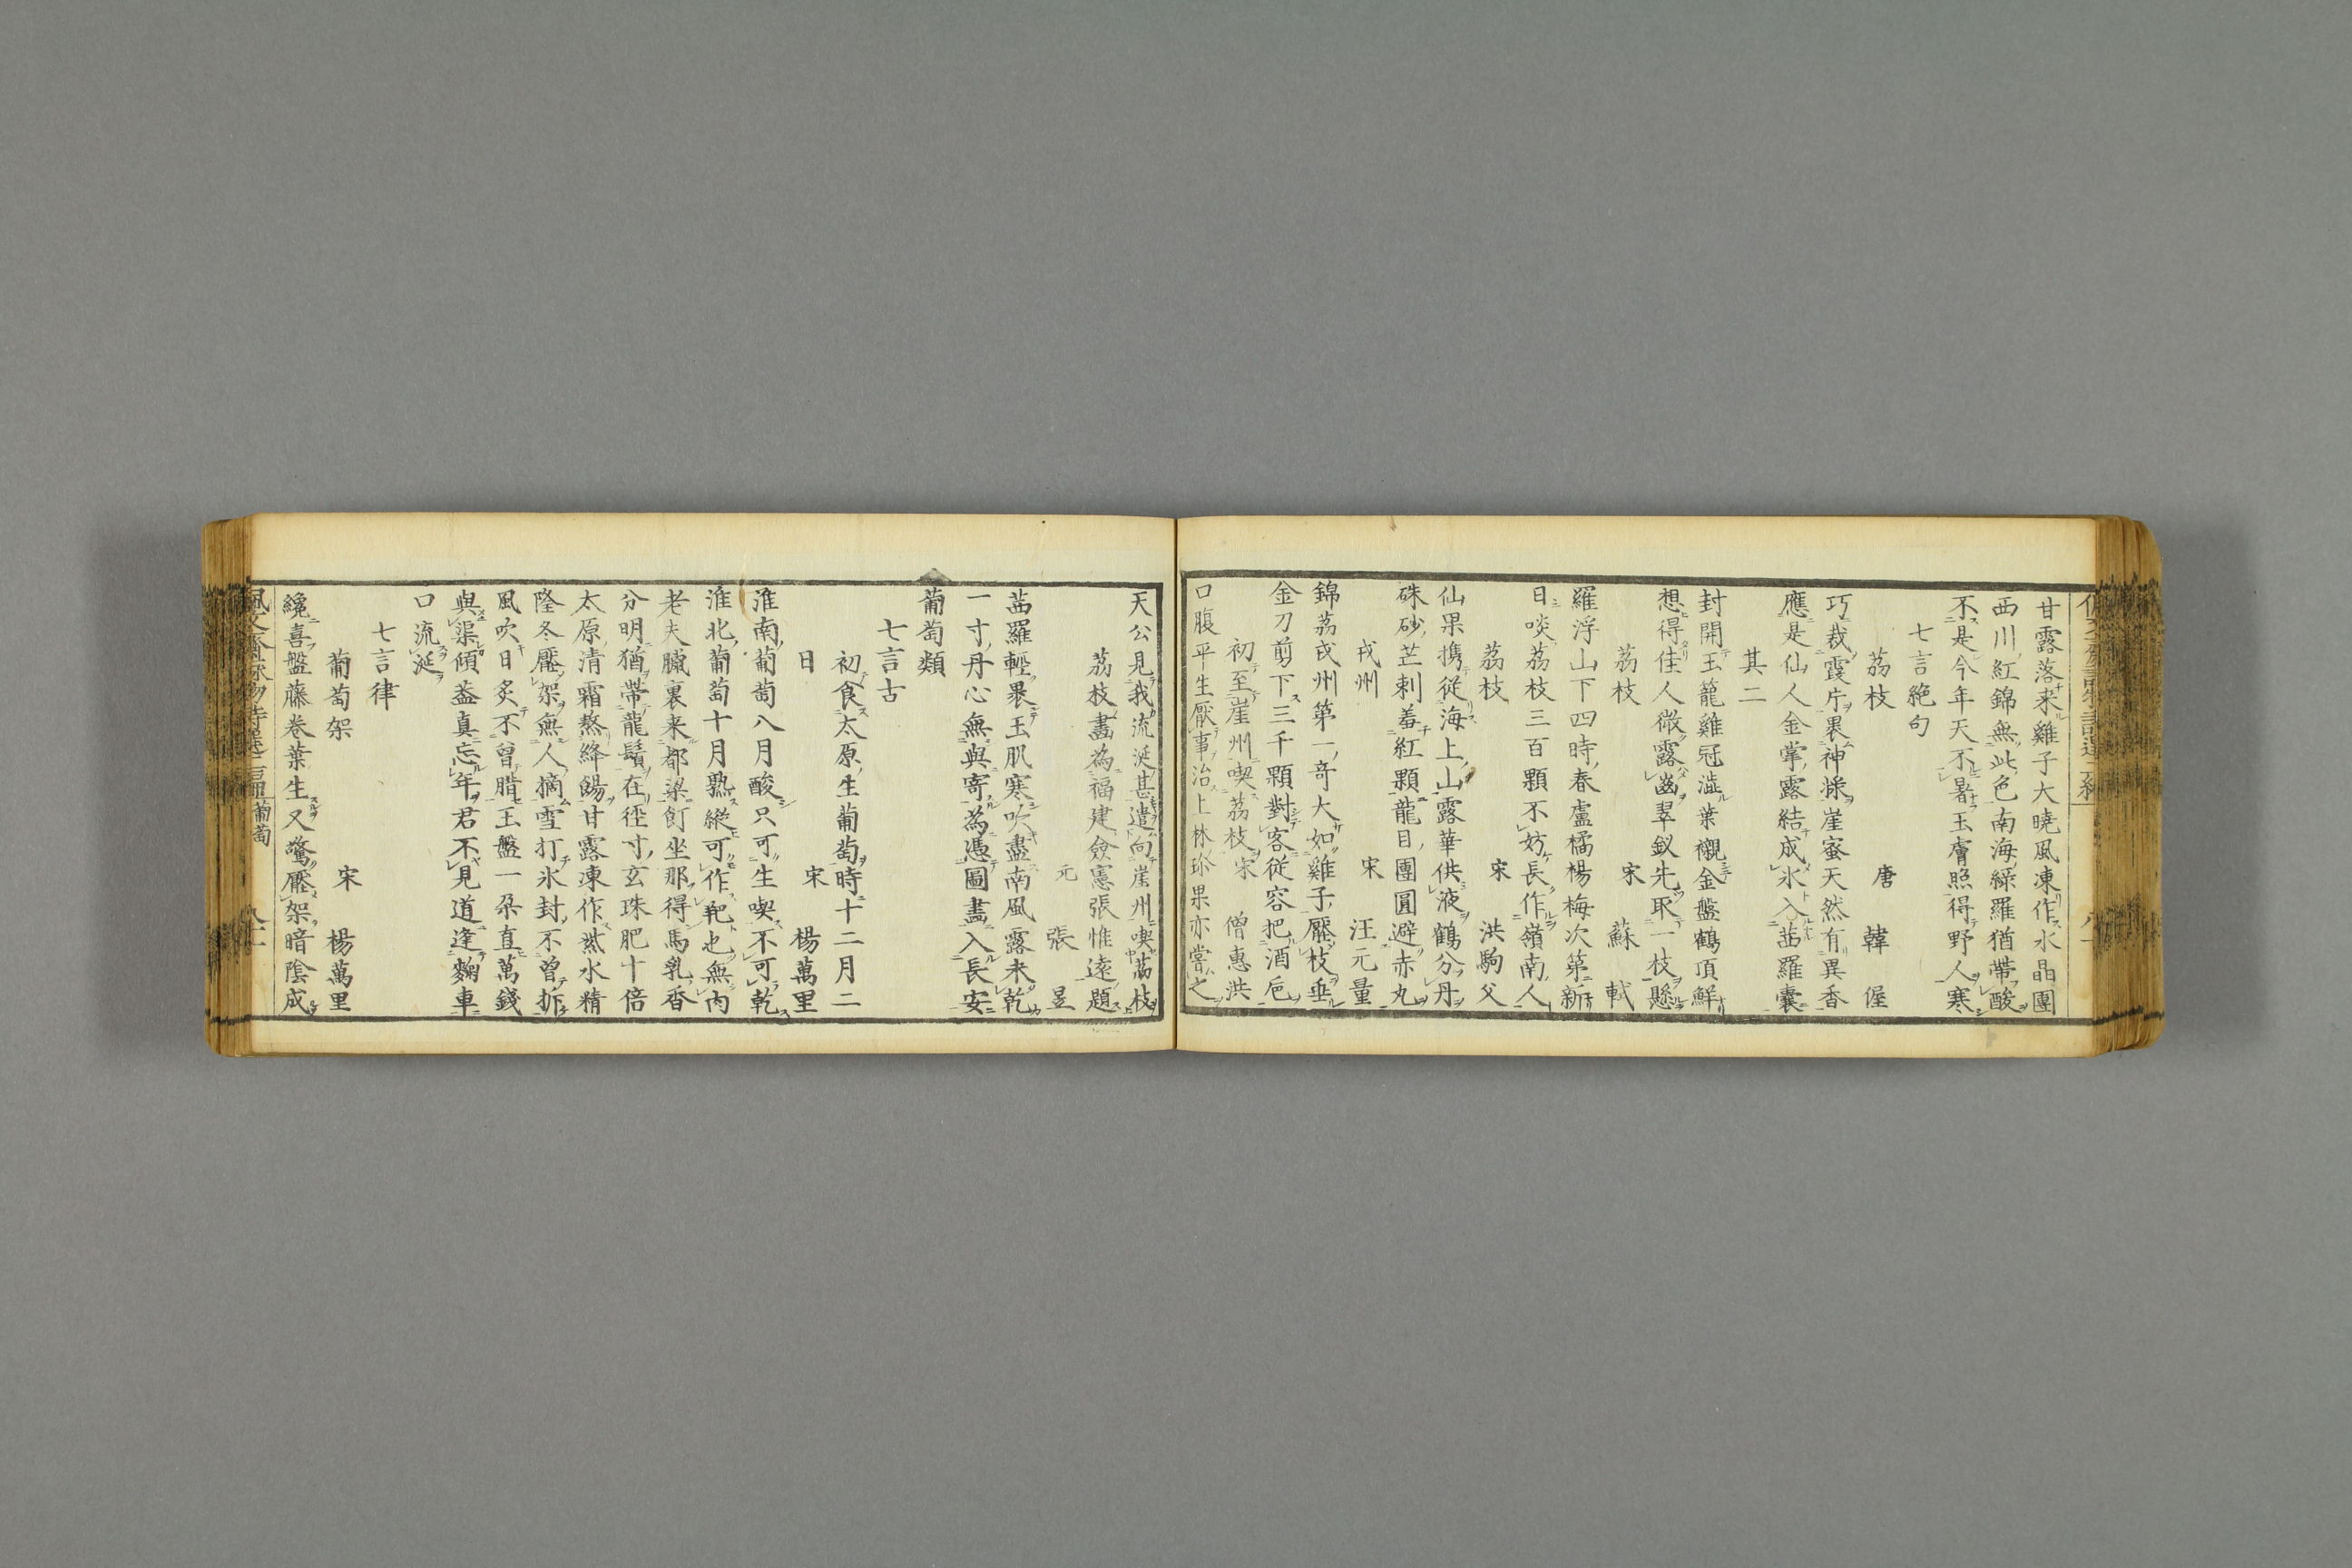 甘露落来雞子大曉風凍作水晶團
西川紅錦無此色南海緑羅猶帶酸
不是今年天不暑玉膚照得野人寒
七言絶句
荔枝 唐 韓偓
巧裁霞片裹神漿崖蜜天然有異香
應是仙人金掌露結成氷入茜羅囊
其二
封開玉籠雞冠澁葉襯金盤鶴頂鮮
想得佳人微露齒翠釵先取一枝懸
荔枝 宋 蘇軾
羅浮山下四時春盧橘楊梅次第新
日啖荔枝三百顆不妨長作嶺南人
荔枝 宋 洪駒父
仙果携従海上山露華供液鶴分丹
硃砂芒刺羞紅顆龍目團圓避赤丸
戎州 宋 汪元量
錦荔戎州第一奇大如雞子壓枝垂
金刀剪下三千顆對客従容把酒巵
初至崖州喫荔枝 宋 僧惠洪
口腹平生厭事治上林珍果亦嘗之
天公見我流涎甚遣向崖州喫荔枝
荔枝畵為福建僉憲張惟遠題
元 張昱
茜羅輕裹玉肌寒吹盡南風露未乾
一寸丹心無與寄為憑圖畵入長安
葡萄類
七言古
初食太原生葡萄時十二月二
日 宋 楊萬里
淮南葡萄八月酸只可生喫不可乾
淮北葡萄十月熟縱可作羓也無肉
老夫臘裏来都梁飣坐那得馬乳香
分明猶帶龍鬚在徑寸玄珠肥十倍
太原清霜熬絳餳甘露凍作紫水精
隆冬壓架無人摘雪打氷封不曾拆
風吹日炙不曾腊玉盤一朶直萬錢
與渠傾葢真忘年君不見道逢麴車
口流涎
七言律
葡萄架 宋 楊萬里
纔喜盤藤卷葉生又驚壓架暗陰成
葡萄